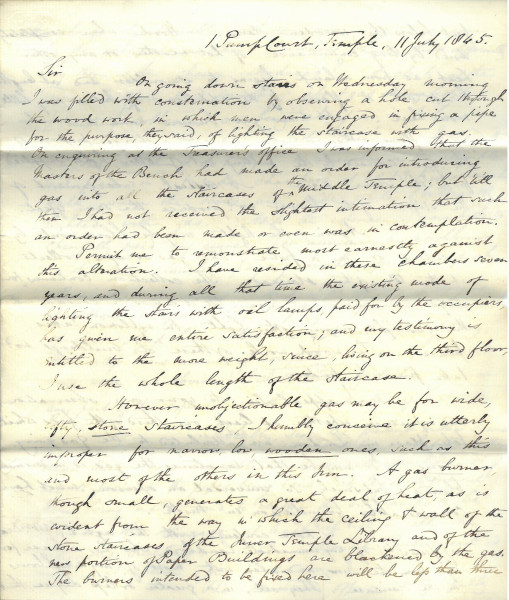 1 Pump Court, Temple, 11 July 1845.
Sir
On going down stairs on Wednesday morning
I was filled with consternation by observing a hole cut through
the wood work, in which men were engaged in fixing a pipe
for the purpose, they said, of lighting the staircase with gas.
On enquiring at the Treasurer's Office I was informed that the
Masters of the Bench had made an order for introducing
gas into all the Staircases of the Middle Temple; but till
then I had not received the slightest intimation that such
an order had been made or even was in contemplation.
Permit me to remonstrate most earnestly against
this alteration. I have resided in these chambers seven
years, and during all that time the existing mode of
lighting the stairs with oil lamps, paid for by the occupiers,
has given me entire satisfaction; and my testimony is
intitled to the more weight, since, living on the third floor,
I use the whole length of the staircase.
However unobjectionable gas may be for wide,
lofty, stone Staircases, I humbly conceive it is utterly
improper for narrow, low wooden ones, such as this
and most of the others in this Inn. A gas burner,
though small, generates a great deal of heat, as is
evident from the way in which the ceiling & wall of the
stone staircases of the Inner Temple Library and of the
new portion of Paper Buildings are blackened by the gas.
The burners intended to be fixed here will be less than three